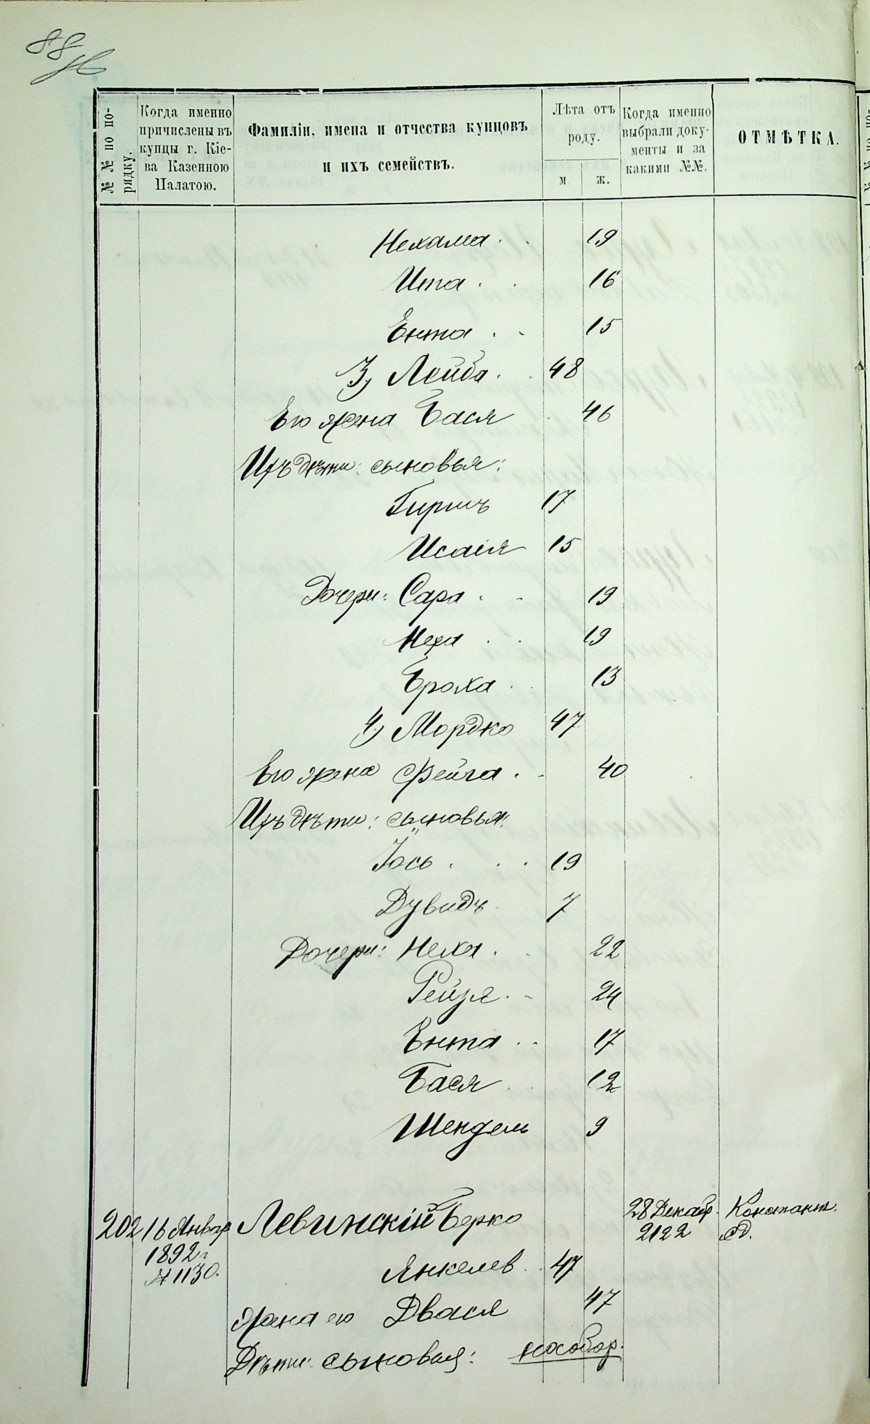 88
№№ по порядку.
Когда именно причислены въ купцы г. Кіева Казенною Палатою.
Фамиліи, имена и отчества купцовъ и ихъ семействъ.
Лѣта отъ роду.
м
ж.
Когда именно выбрали документы и за какими №№.
ОТМѢТКА.
Нехама 19
Ита 16
Ента 15
3) Лейба 48
Его жена Бася 46
Ихъ дѣти: сыновья:
Гиршъ 17
Исаія 15
Дочери: Сара 19
Неха 19
Броха 13
4) Мордко 47
Его жена Фейга 40
Ихъ дѣти: сыновья:
Іось 19
Дувидъ 7
Дочери: Неха 22
Рейзя 24
Ента 17
Бася 12
Шендель 9
202 16 Январ Левинскій Берко 28 Декабр. Констант.
1892 г. 2122
№ 1130. Янкелев 47
жена его Двася 47
Дѣти: сыновья: